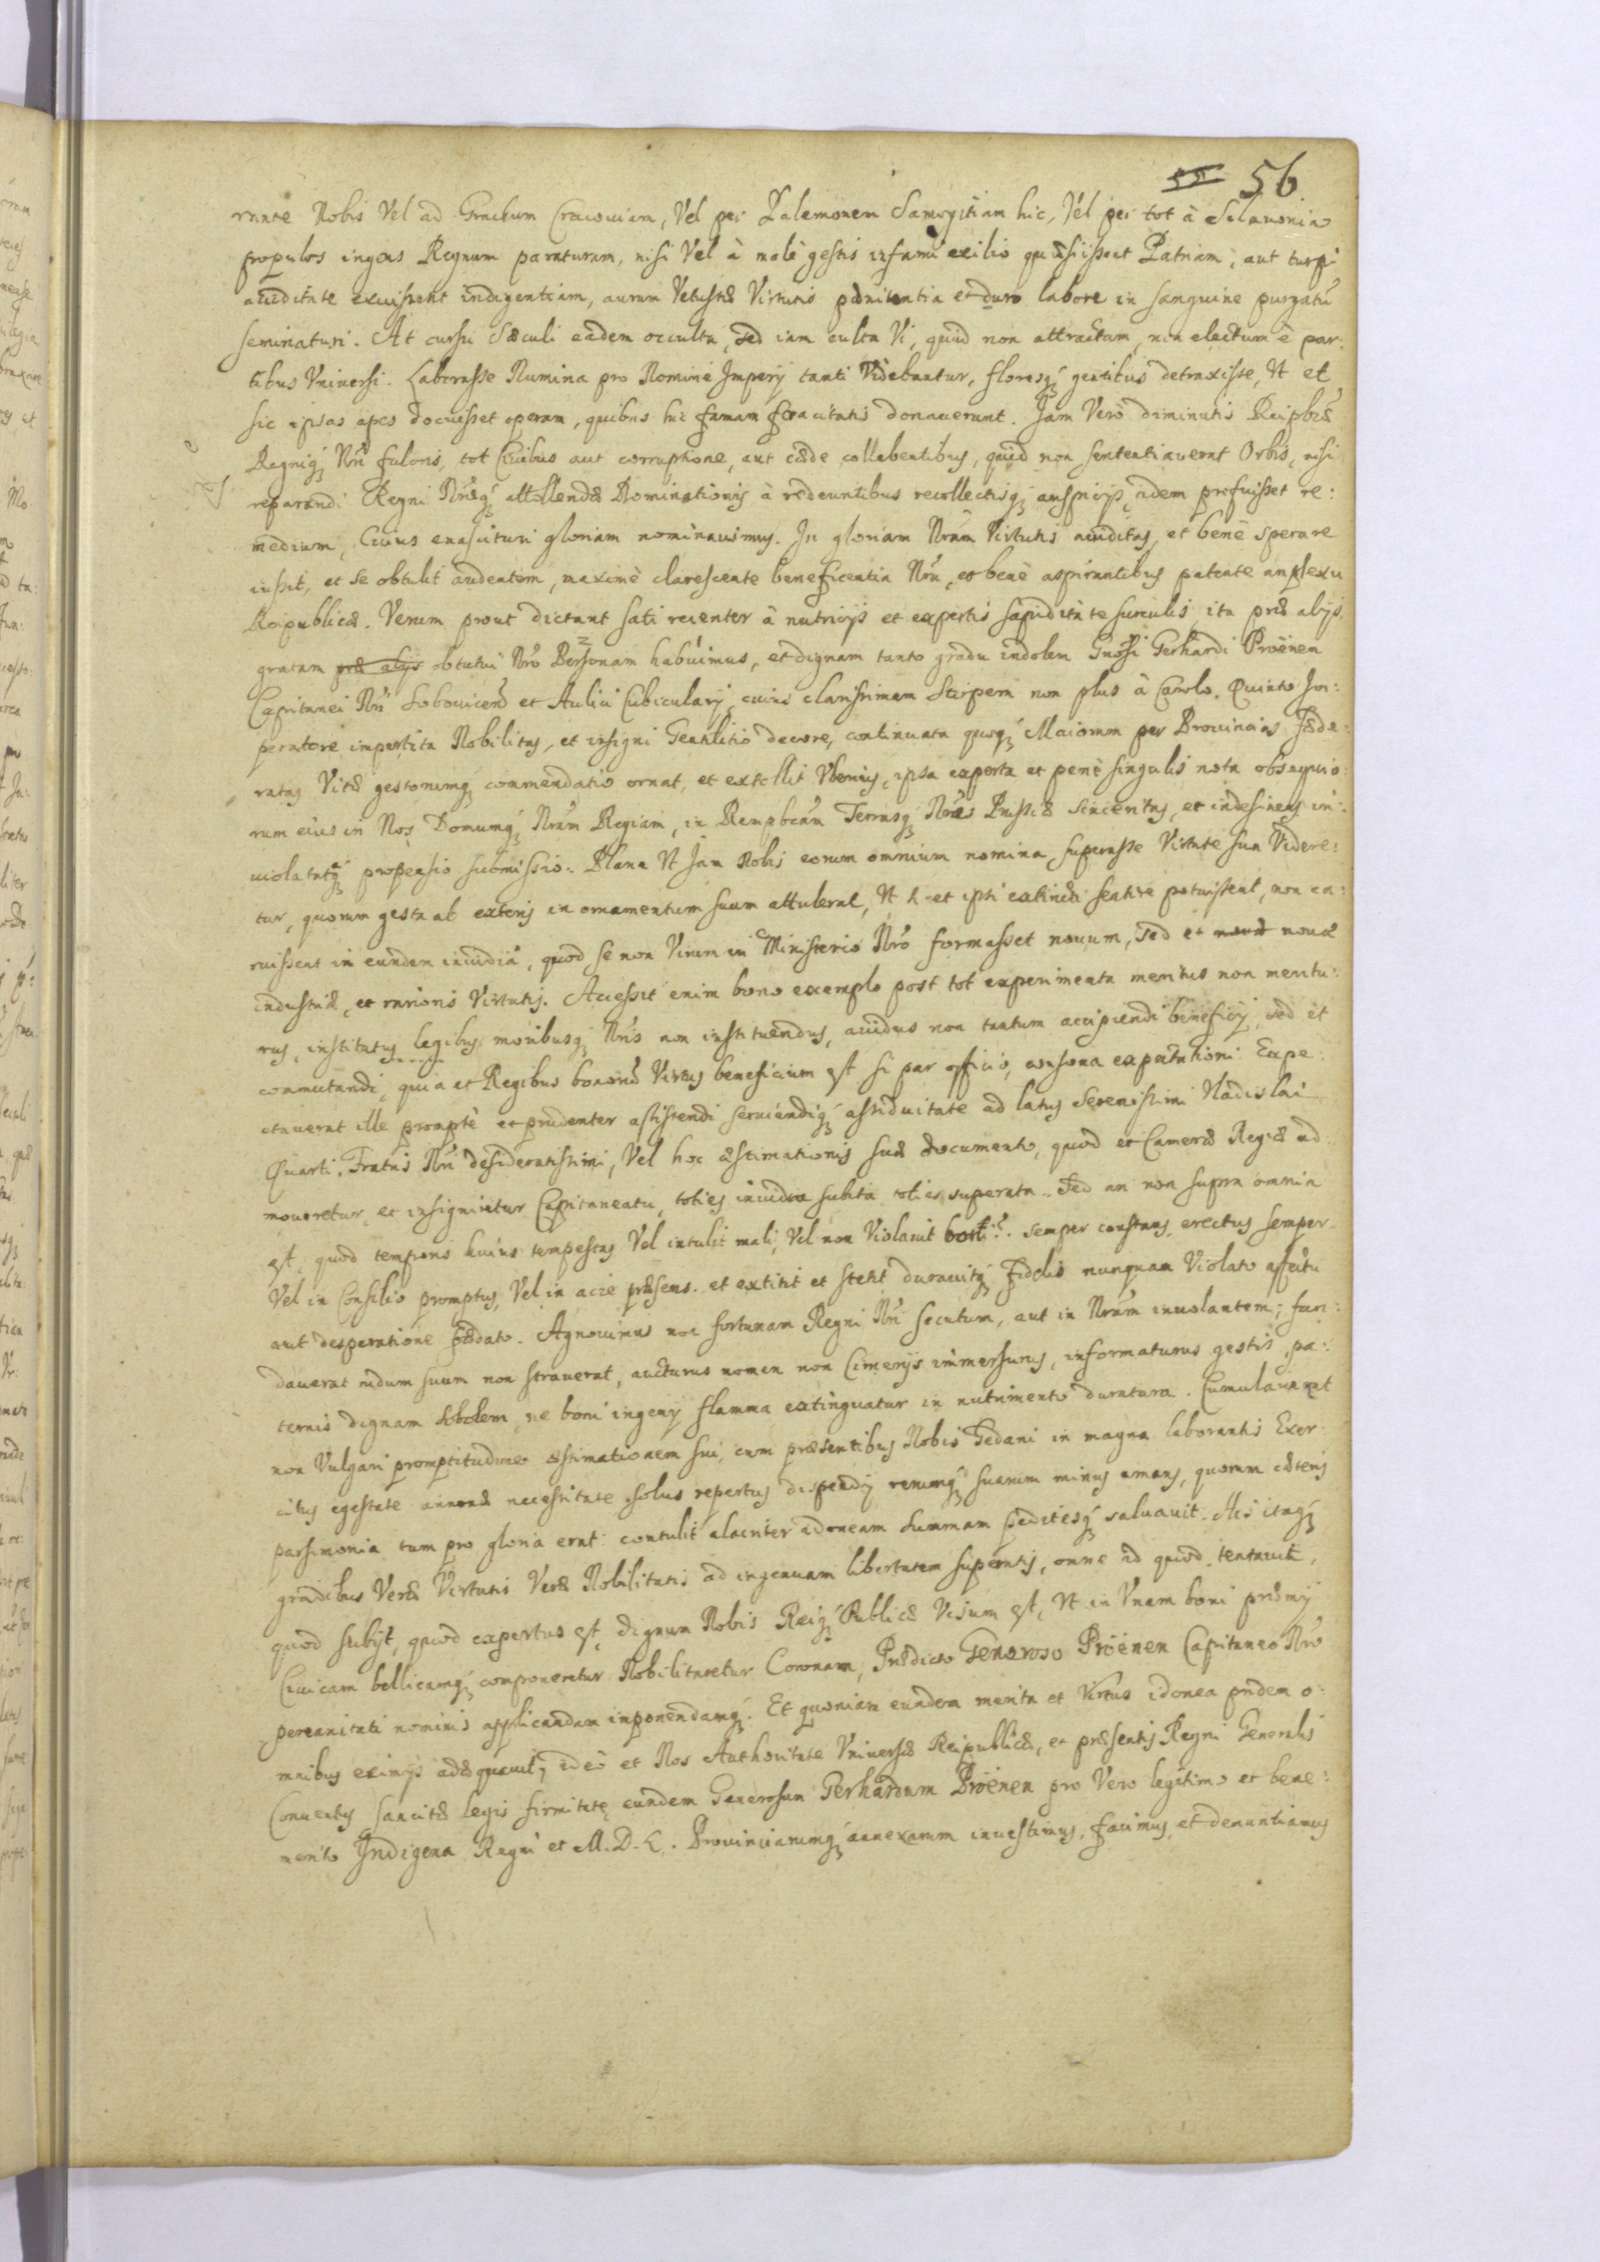 55 56
runte Nobis Vel ad Gracum Cracoviam, Vel per Palemonem Samogitiam hic, Vel per tot à Sclavonia
populos ingens Regnum paraturum, nisi Vel à malè gestis infami exilio quæsiissent Patriam, aut turpi
aviditate exuissent indigentiam, aurum Vetustæ Virtutis pœnitentia et duro labore in sanguine purgatũ
seminaturi. At cursu Sæculi eadem occulta, sed iam culta Vi, quid non attractum, non electum è par:
tibus Vniversi. Laborasse Numina pro Nomine Imperij tanti Videbantur, floresq́ꝫ gentibus detraxisse, Vt et
sic ipsas apes docuisset operam, quibus hic famam feracitatis donaverunt. Jam Verò diminutis Reipbcæ
Regniq́ꝫ Nři fulcris, tot Civibus aut corruptione, aut cæde collabentibus, quid non sententiaverat Orbis, nisi
reparandi Regni Nřæq́ꝫ attollendæ Dominationis à redeuntibus recollectisq́ꝫ auspicijs, idem profuisset re:
medium, Cuius enascituri gloriam nominavimus. In gloriam Nrãm Virtutis aviditas, et benè sperare
iussit, et se obtulit audentem, maximè clarescente beneficentia Nřa, et benè aspirantibus patente amplexu
Reipublicæ. Verum prout dictant sati recenter à nutricijs et expertis sapiditate surculis, ita præ alijs
gratam præ alijs obtutui Nřo Personam habuimus, et dignam tanto gradu indolem Gnõsi Gerhardi Proënen
Capitanei Nři Sobovicen̄ et Aulici Cubicularij, cuius clarissimam Stirpem non plus à Carolo Quinto Im:
peratore impertita Nobilitas, et insigni Gentilitio decore, continuata quoq́ꝫ Maiorum per Provincias Fœde:
ratas Vitæ gestorumq́ꝫ commendatio ornat, et extollit Vberius, ipsa experta et penè singulis nota obsequio:
rum eius in Nos Domumq́ꝫ Nrãm Regiam, in Rempbcãm Terrasq́ꝫ Nřas Prussiæ sinceritas, et indesinens in:
violataq́ꝫ propensio submissio. Plane Vt Jam Nobis eorum omnium nomina superasse Virtute sua Videre:
tur, quorum gesta ab exteris in ornamentum suum attulerat, Vt et ipsi extincti sentire potuissent, non ca:
ruissent in eundem invidiâ, quod se non Virum in Ministerio Nřo formasset novum, sed et novæ novæ
industriæ, et rarioris Virtutis. Accessit enim bono exemplo post tot experimenta meritus non meritu:
rus, institutus legibus moribusq́ꝫ Nřis non instituendus, avidus non tantum accipiendi beneficij sed et
commutandi, quia et Regibus bonorũ Virtus beneficium est si par officio, consona expectationi. Expe:
ctaverat ille promptè et prudenter assistendi serviendiq́ꝫ assiduitate ad latus Serenissimi Vladislai
Quarti, Fratris Nři desideratissimi, Vel hoc æstimationis suæ documento, quod et Cameræ Regiæ ad
moveretur, et insigniretur Capitaneatu, toties invidia subita toties superata. Sed an non supra omnia
est, quod temporis huius tempestas Vel intulit mali, Vel non Violavit boni? semper constans, erectus semper
Vel in Consilio promptus, Vel in acie præsens. et extitit et stetit duravitq́ꝫ Fidelis nunquam Violato affectu
aut desperatione fœdato. Agnovimus non fortunam Regni Nři secutum, aut in Nrãm involantem; fun:
daverat nidum suum non straverat, aucturus nomen non Cimerijs immersurus, informaturus gestis, pa:
ternis dignam sobolem, ne boni ingenij flamma extinguatur in nutrimento duratura. Cumulaverat
non Vulgari promptitudine æstimationem sui, cum præsentibus Nobis Gedani in magna laborantis Exer:
citus egestate annonæ necessitate solus repertus dispendij rerumq́ꝫ suarum minus amans, quorum cæteris
parsimonia tum pro gloria erat: contulit alacriter idoneam Summam peditesq́ꝫ salvavit. His itaq́ꝫ
gradibus Veræ Virtutis Veræ Nobilitatis ad ingenuam libertatem superatis, omne id quod tentavit,
quod subijt, quod expertus est, dignum Nobis Reiq́ꝫ Publicæ Visum est, Vt in Vnam boni præmij
Civicam bellicamq́ꝫ componeretur Nobilitaretur Coronam, Prædicto Generoso Proënen Capitaneo Nřo
perennitati nominis applicandam imponendamq́ꝫ. Et quoniam eundem merita et Virtus idonea pridem o:
mnibus eximijs adæquavit, ideò et Nos Authoritate Vniversæ Reipublicæ, et præsentis Regni Generalis
Conventus sancitæ legis firmitate eundem Generosum Gerhardum Proënen pro Vero legitimo et bene:
merito Indigena Regni et M. D. L. Provinciarumq́ꝫ annexarum investimus, facimus et denuntiamus